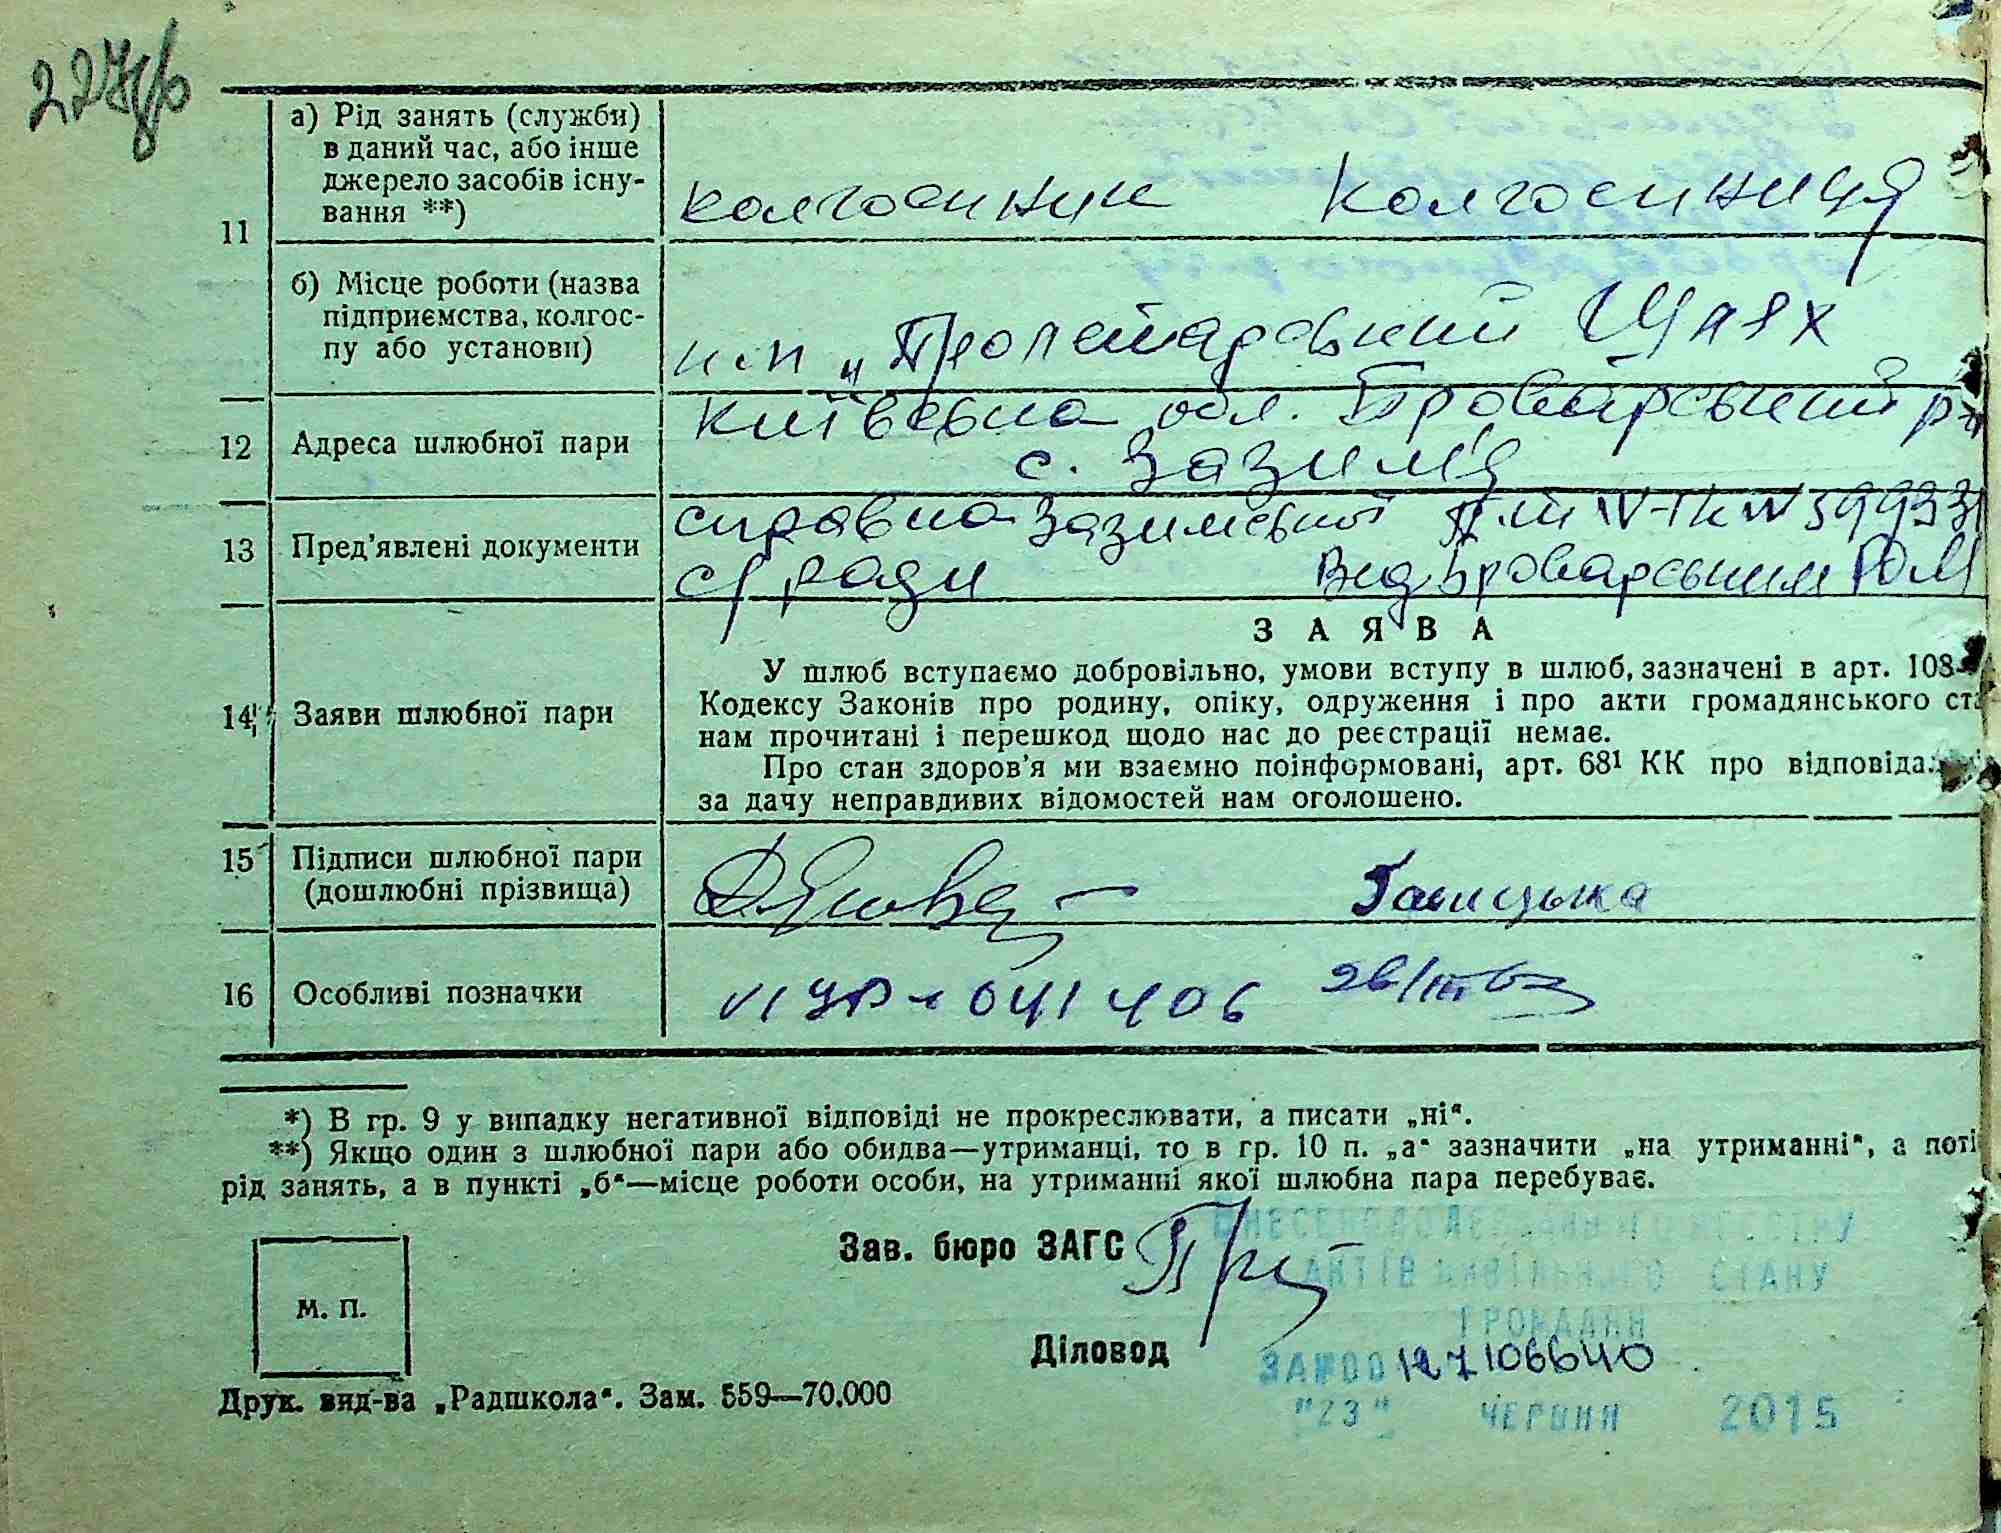 227
а) Рід занять (служби)
в даний час, або інше
джерело засобів існу-
вання **)
11
колгоспник колгоспниця
б) Місце роботи (назва
підприємства, колгос-
пу або установи)
к-п „Пролетарський Шлях
12
Адреса шлюбної пари
Київська обл. Броварський р-н
с. Зазим'я
13
Пред'явлені документи
справка Зазимської П-т IV-ТК N 599331
с/ради Вид. Броварським РОМ
14
Заяви шлюбної пари
ЗАЯВА
У шлюб вступаємо добровільно, умови вступу в шлюб, зазначені в арт. 108
Кодексу Законів про родину, опіку, одруження і про акти громадянського ст
нам прочитані і перешкод щодо нас до реєстрації немає.
Про стан здоров'я ми взаємно поінформовані, арт. 68¹ КК про відповіда
за дачу неправдивих відомостей нам оголошено.
15
Підписи шлюбної пари
(дошлюбні прізвища)
Галицька
16
Особливі позначки
041406
*) В гр. 9 у випадку негативної відповіді не прокреслювати, а писати „ні“.
**) Якщо один з шлюбної пари або обидва—утриманці, то в гр. 10 п. „а“ зазначити „на утриманні“, а поті
рід занять, а в пункті „б“—місце роботи особи, на утриманні якої шлюбна пара перебуває.
Зав. бюро ЗАГС
ВНЕСЕНО ДО ДЕРЖАВНОГО РЕЄСТРУ
АКТІВ ЦИВІЛЬНОГО СТАНУ
ГРОМАДЯН
М. П.
Діловод
ЗА №00127106640
Друк. вид-ва „Радшкола“. Зам. 559—70.000
"23" ЧЕРВНЯ 2015